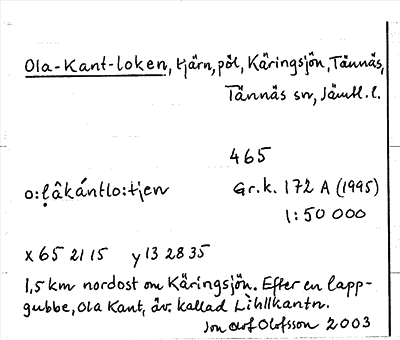 Ola-Kant-loken, tjärn, pöl, Käringsjön, Tännäs,
Tännäs sn, Jämtl. l.
465
o:ḷâkántlo:tjen
Gr.k. 172 A (1995)
1:50 000
x 65 21 15 y 13 28 35
1,5 km nordost om Käringsjön. Efter en lapp-
gubbe, Ola Kant, äv. kallad Lìhllkantn.
Jon Olof Olofsson 2003